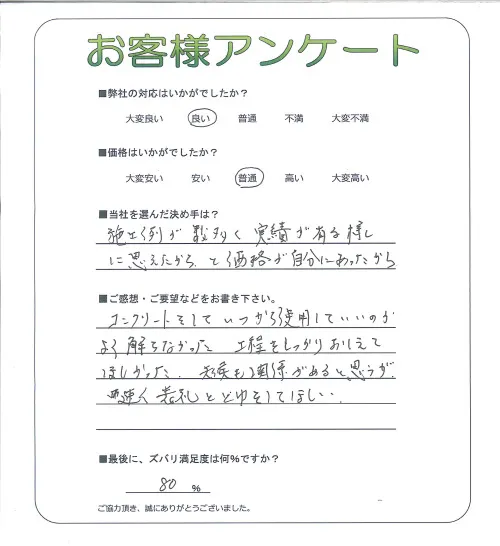 お客様アンケート
■弊社の対応はいかがでしたか？
大変良い 良い 普通 不満 大変不満
■価格はいかがでしたか？
大変安い 安い 普通 高い 大変高い
■当社を選んだ決め手は？
施工例が数多く 実績が有る様し
に思えたから、と価格が自分にあったから
■ご感想・ご要望などをお書き下さい。
コンクリートをして いつから使用していいのか
よく解らなかった 工程をしっかりおしえて
ほしかった、天候も関係があると思うが、
早速く 表札とと をしてほしい.
■最後に、ズバリ満足度は何％ですか？
80 %
ご協力頂き、誠にありがとうございました。